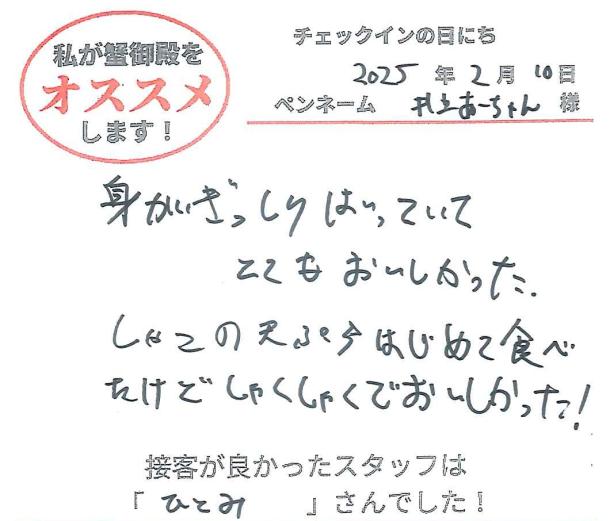 私が蟹御殿を
オススメ
します！
チェックインの日にち
2025 年 2 月 10 日
ペンネーム 井上あーちゃん 様
身がぎっしりはいっていて
とてもおいしかった.
しゃこの天ぷらはじめて食べ
たけどしゃくしゃくでおいしかった!
接客が良かったスタッフは
「 ひとみ 」さんでした！